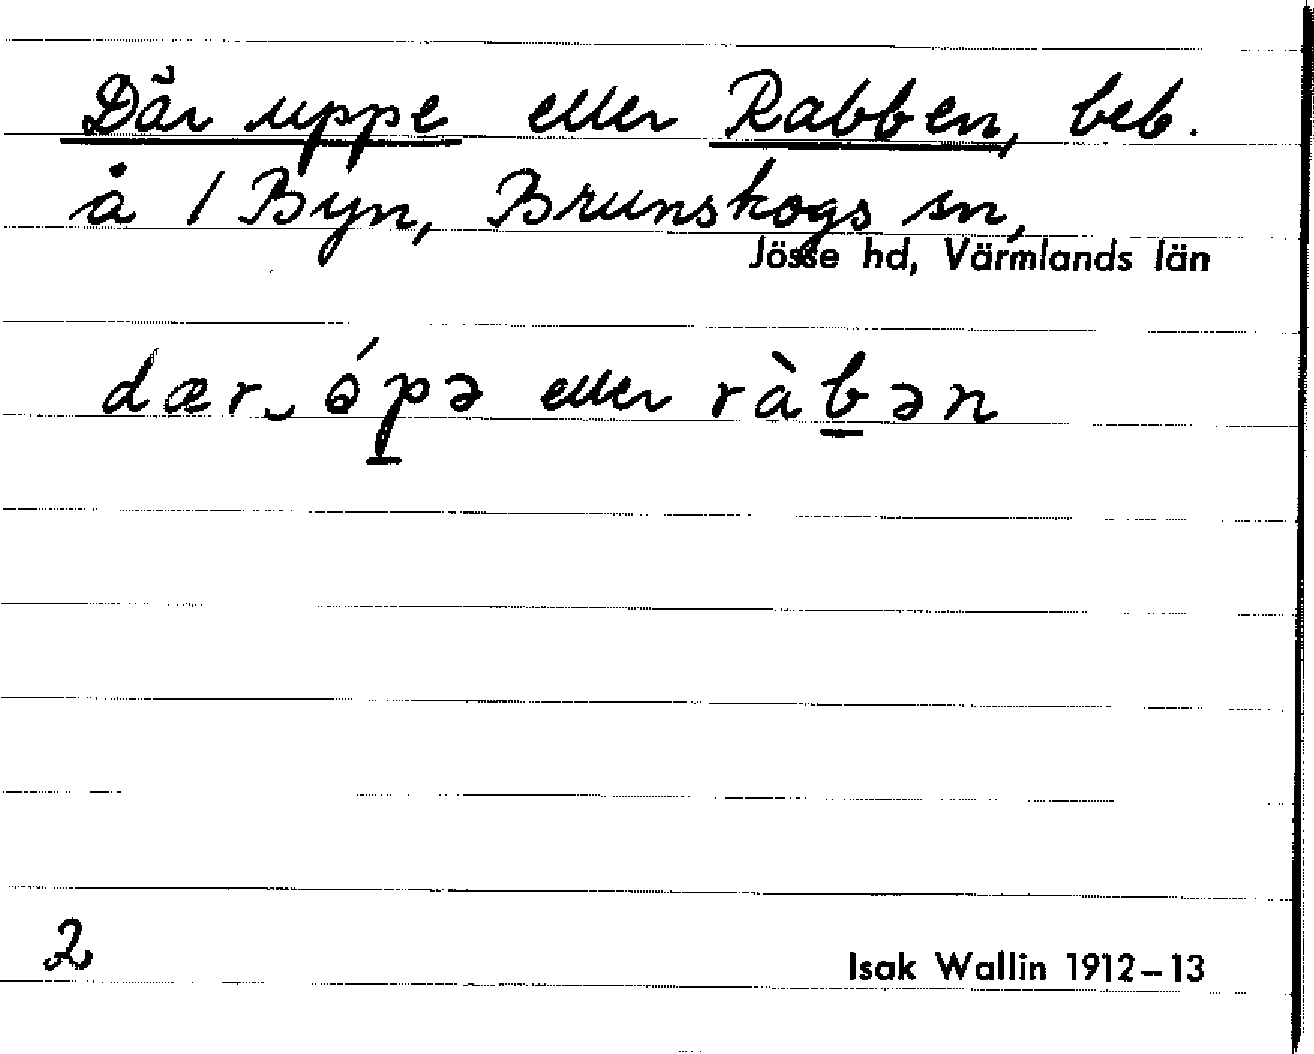 Där uppe eller Rabben, beb.
å 1 Byn, Brunskogs sn,
Jösse hd, Värmlands län
dær‿ǿpə eller ràbən
2
Isak Wallin 1912–13